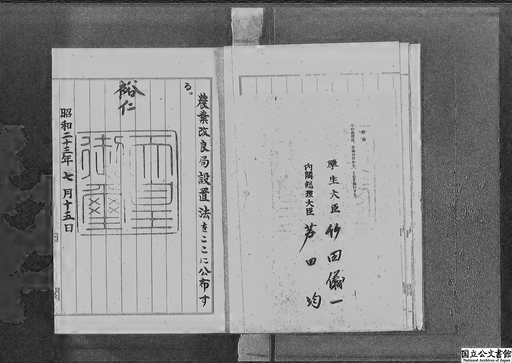 厚生大臣 竹田儀一
内閣総理大臣 芦田均
農業改良局設置法をここに公布す
る。
裕仁
天皇
御璽
昭和二十三年七月十五日
国立公文書館
National Archives of Japan